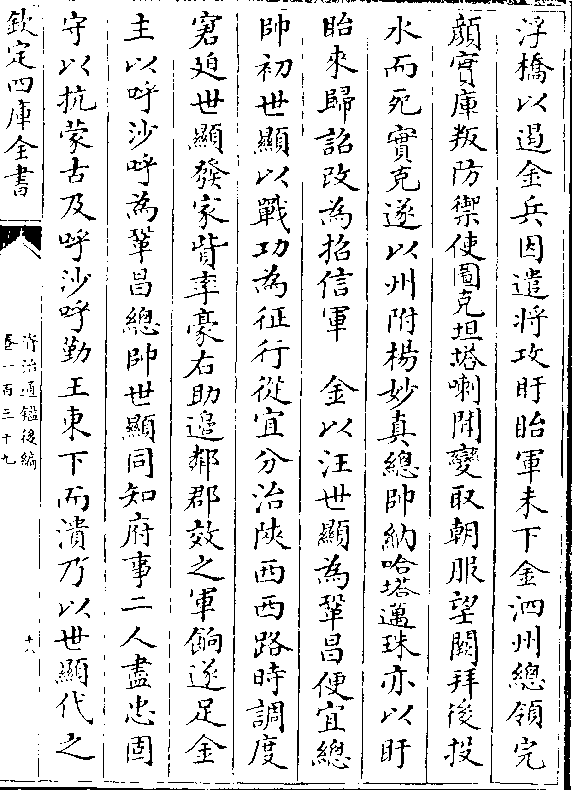 浮橋以遏金兵因遣將攻盱眙軍未下金泗州總領完
顔實庫叛防禦使圖克坦塔喇聞變取朝服望闕拜後投
水而死實克遂以州附楊妙真總帥納哈塔邁珠亦以盱
眙來歸詔改為招信軍　金以汪世顯為鞏昌便宜總
帥初世顯以戰功為征行從宜分治陜西西路時調度
窘迫世顯發家貲率豪右助邊鄰郡效之軍餉遂足金
主以呼沙呼為鞏昌總帥世顯同知府事二人盡忠固
守以抗蒙古及呼沙呼勤王東下而潰乃以世顯代之
欽定四庫全書
資治通鑑後編
卷一百三十九
十八